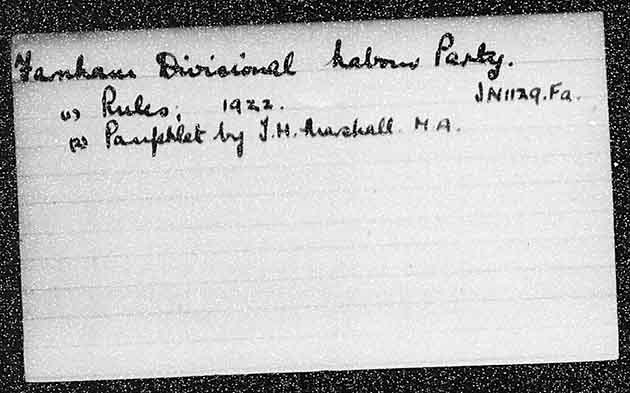 Farnham Divisional Labour Party.
(1) Rules, 1922. JN1129.Fa.
(2) Pamphlet by T.H. Marshall. M A.